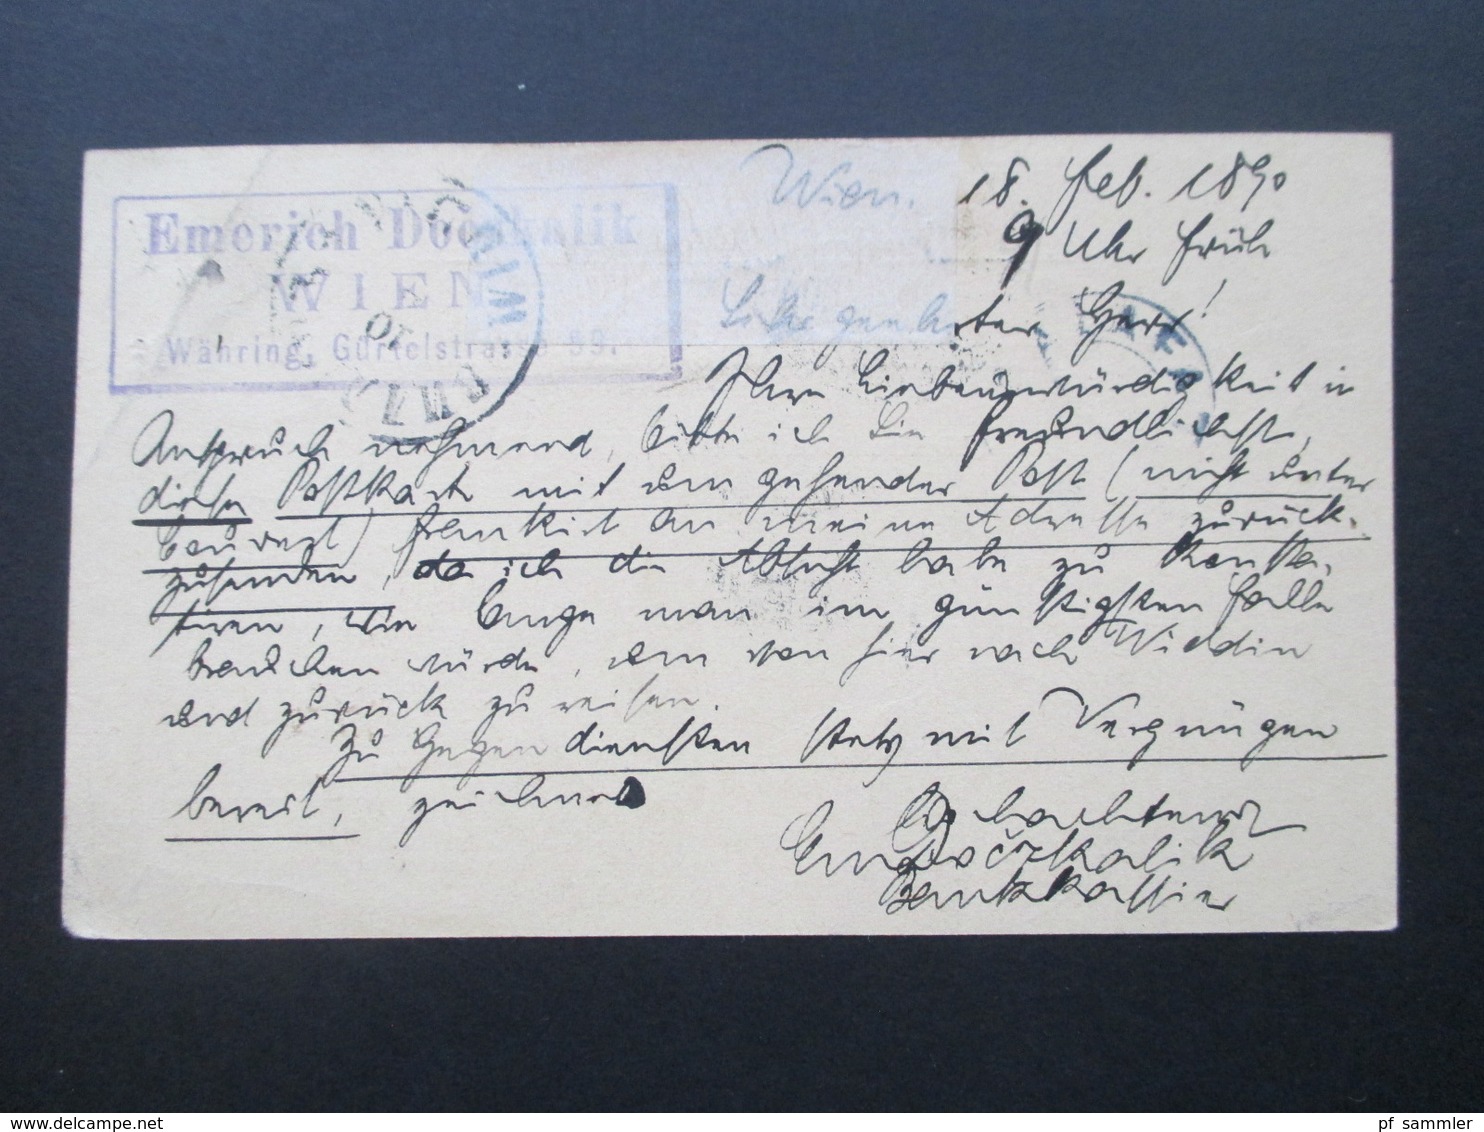 Emerich Dočzkalik
WIEN
Währing, Gürtelstrasse 99.
Wien. 18. Feb. 1890
9 Uhr früh
Sehr geehrter Herr!
Ihre Liebenswürdigkeit in
Anspruch nehmend, bitte ich Sie freundlichst,
diese Postkarte mit umgehender Post (nicht unter
Couvert) frankirt an meine Adresse zurück
zusenden, da ich die Absicht habe zu konsta-
tiren, wie lange man im günstigsten Falle
brauchen würde, um von hier nach Widdin
und zurück zu reisen.
Zu Gegendiensten stets mit Vergnügen
bereit, zeichnet
Achtend
Em. Dočzkalik
Bankkassier
pf_sammler